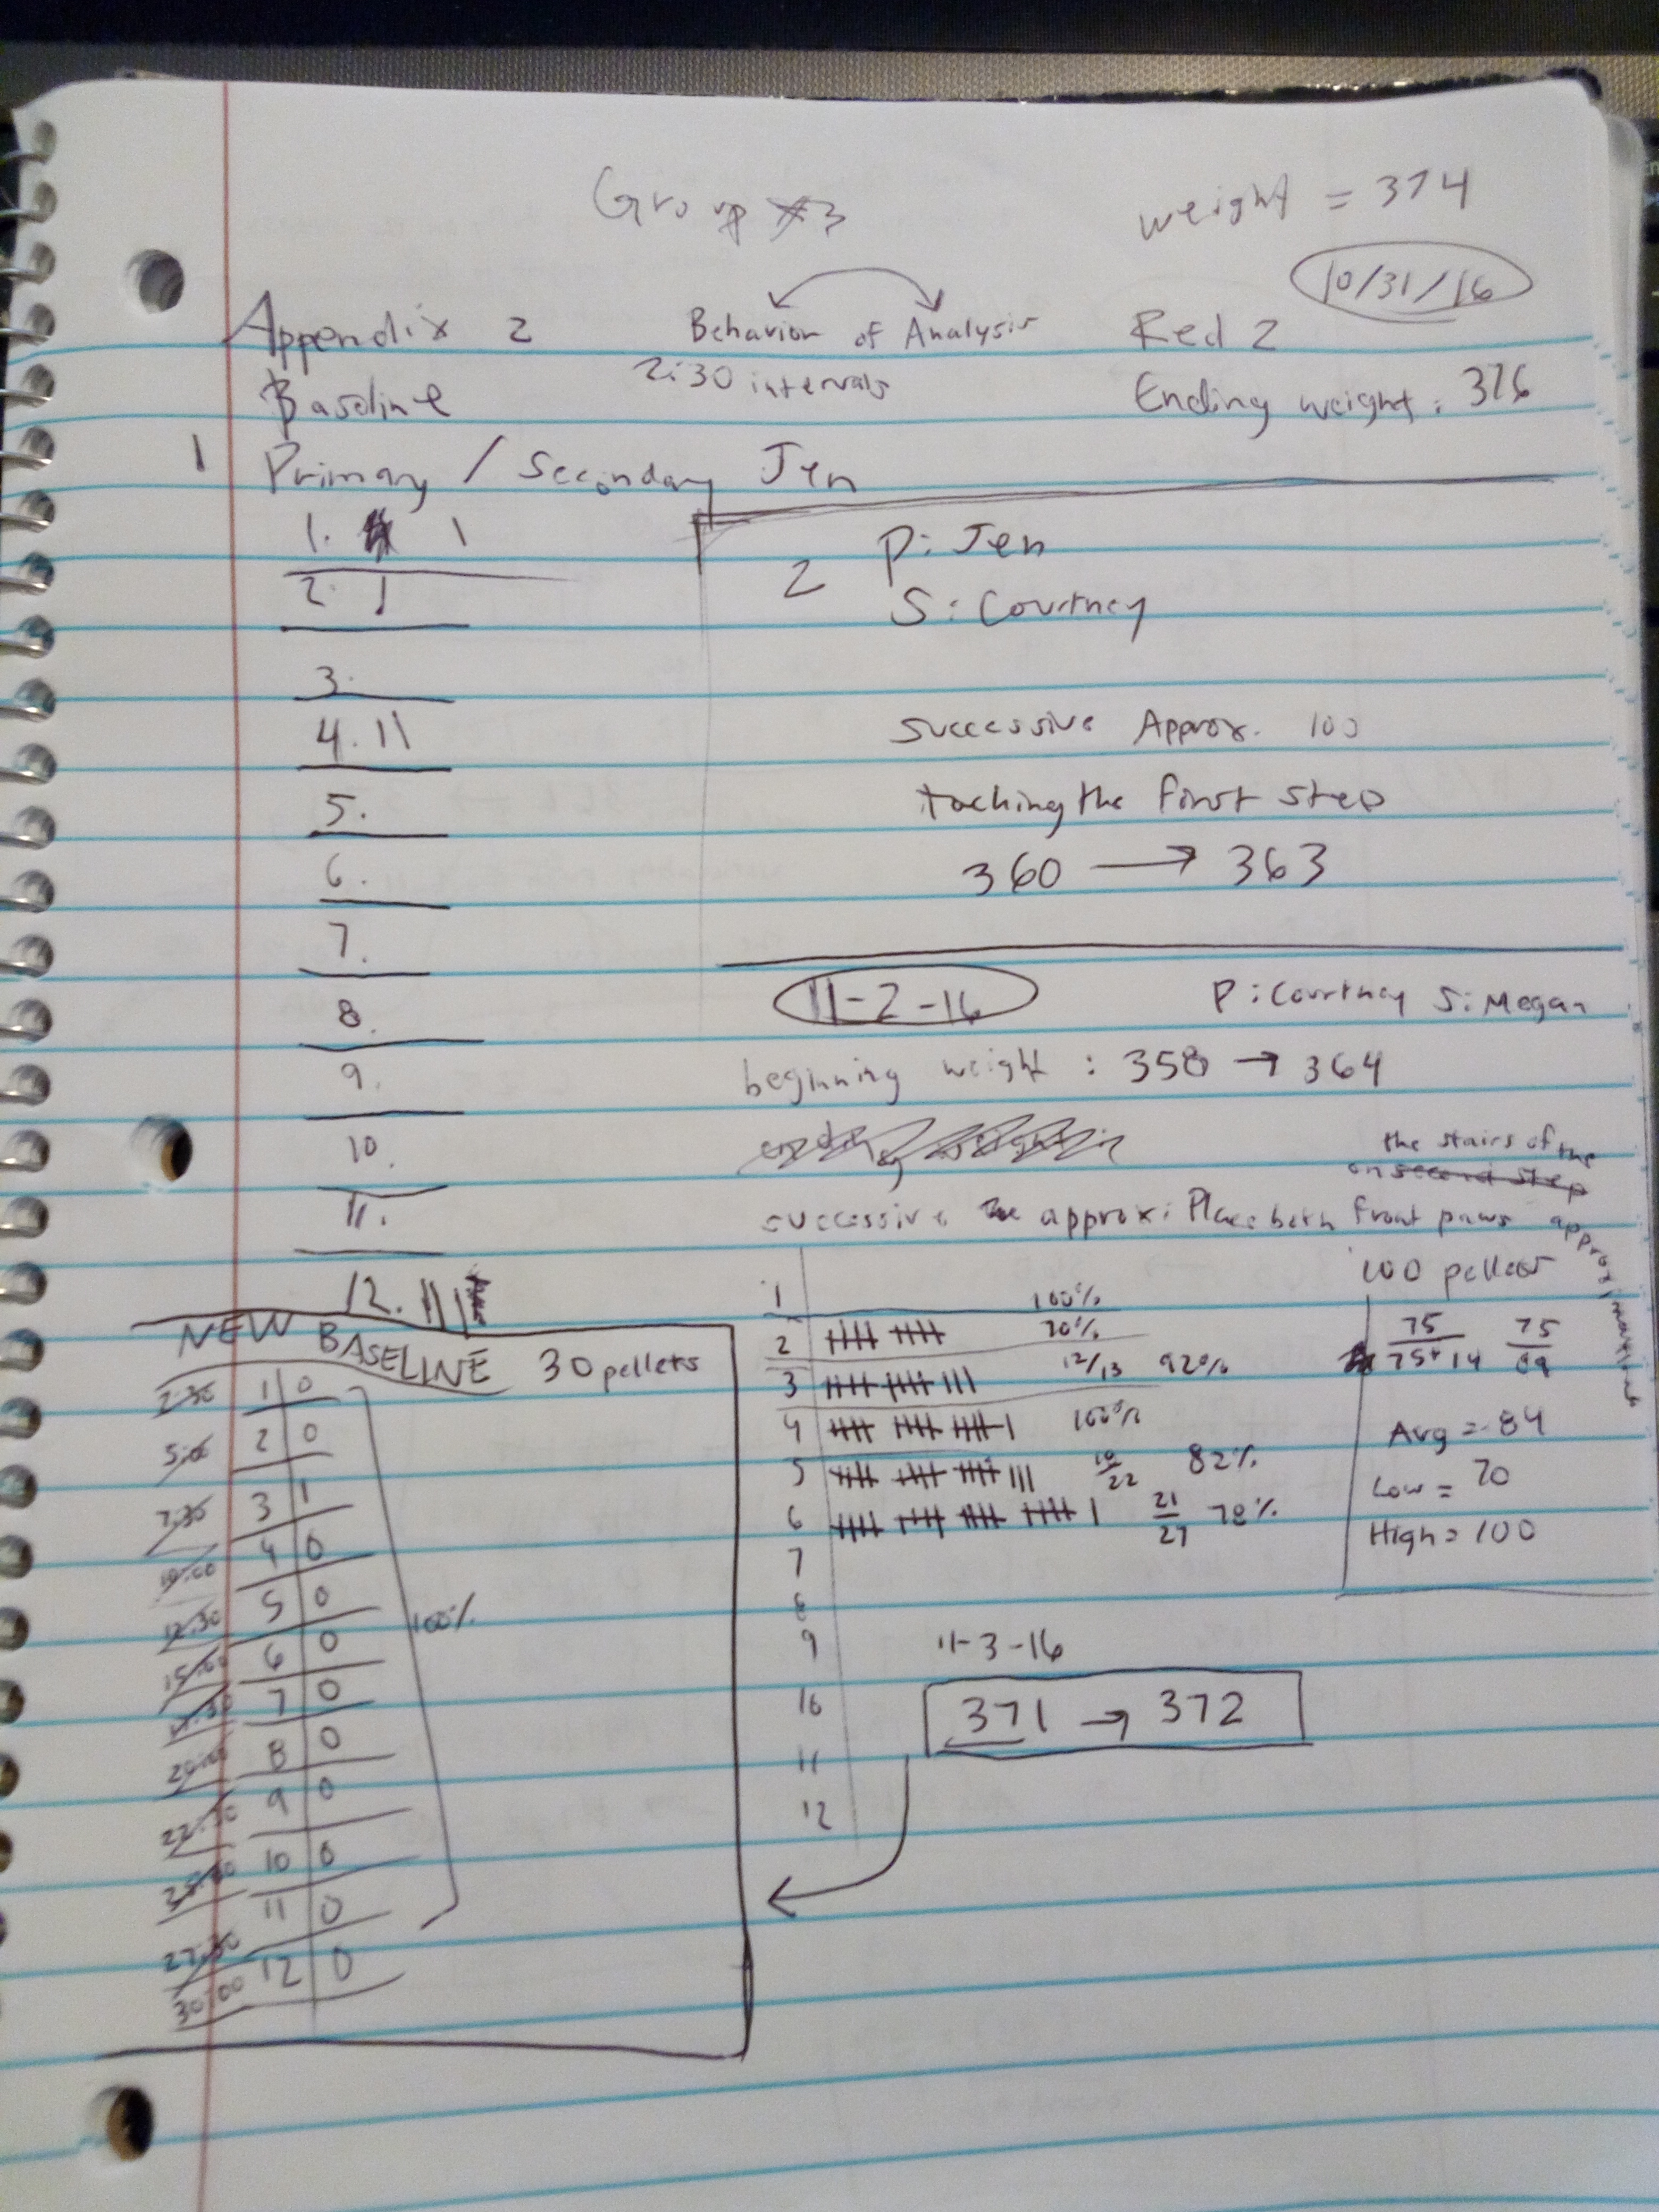 Group #3
weight = 374
10/31/16
Appendix 2 Behavior of Analysis Red 2
Baseline 2:30 intervals Ending weight: 376
1 Primary / Secondary Jen
1. 1
2. 1
3.
4. 11
5.
6.
7.
8.
9.
10.
11.
12. 111
2 P: Jen
S: Courtney
Successive Approx. 100
toching the first step
360 → 363
11-2-16 P: Courtney S: Megan
beginning weight : 358 → 364
the stairs of the
on second step
successive approx: Place both front paws approximation
1 100%
2 |||| |||| 70%
3 |||| |||| ||| 12/13 92%
4 |||| |||| |||| | 100%
5 |||| |||| |||| ||| 18/22 82%
6 |||| |||| |||| |||| | 21/27 78%
7
8
9
10
11
12
100 pellets
75/75+14 75/89
Avg = 84
Low = 70
High = 100
11-3-16
371 → 372
NEW BASELINE 30 pellets
2:30 1 0
5:00 2 0
7:30 3 1
10:00 4 0
12:30 5 0
15:00 6 0
17:30 7 0
20:00 8 0
22:30 9 0
25:00 10 0
27:30 11 0
30:00 12 0
100%